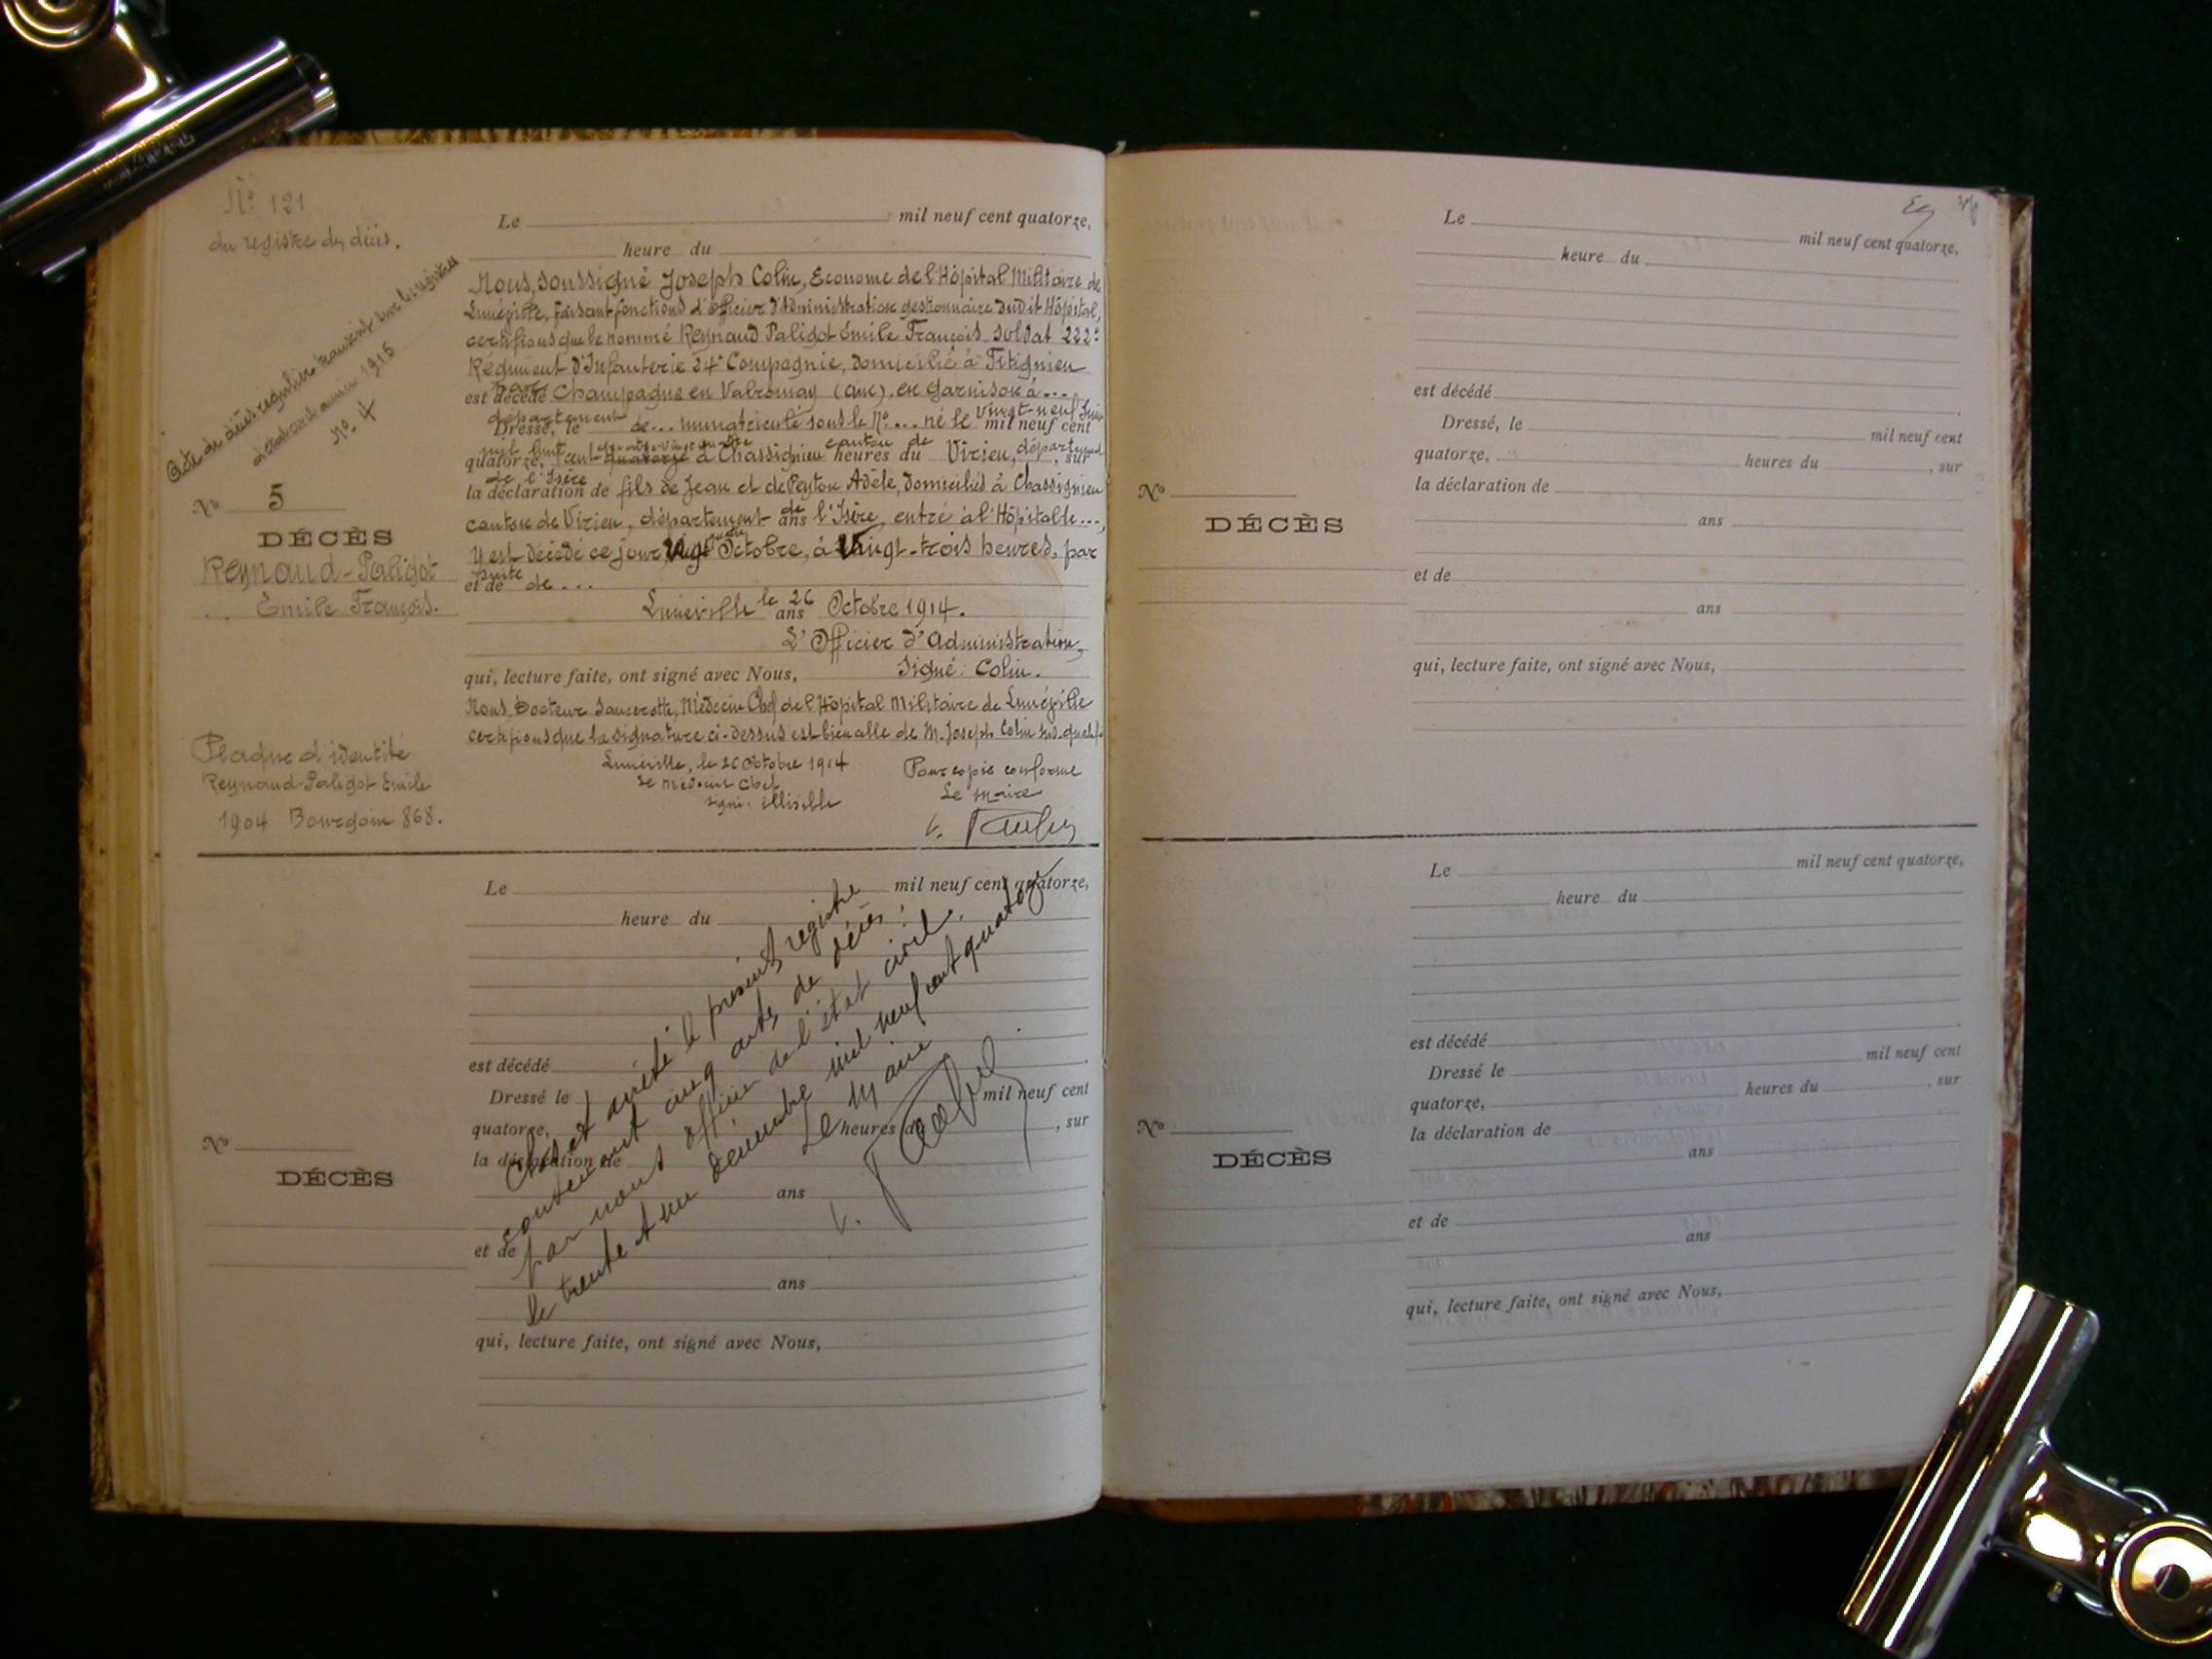 N° 121
du registre des décès.
Acte de décès régulier transcrit sur les registres
d'état civil année 1915
N° 4
N° 5
DÉCÈS
Reynaud-Paligot
Émile François.
Plaque d'identité
Reynaud-Paligot Émile
1904 Bourgoin 868.
Le mil neuf cent quatorze,
heure du
Nous, soussigné Joseph Colin, Econome de l'Hôpital Militaire de
Lunéville, faisant fonctions d'officier d'Administration gestionnaire dudit Hôpital,
certifions que le nommé Reynaud Paligot Émile François soldat 222e
Régiment d'Infanterie 24e Compagnie, domicilié à
est décédé Champagne en Valromay (Ain). en garnison à ...
département de ... immatriculé sous le N° ... né le vingt-neuf Juin
Dressé, le mil neuf cent
mil huit cent quatre-vingt quatre à Chassignieu canton de Virieu, département
quatorze, heures du , sur
de l'Isère
la déclaration de fils de Jean et de Peyton Adèle, domiciliés à Chassignieu
canton de Virieu, département de l'Isère, entré à l'Hôpital le ...,
ans
y est décédé ce jour Octobre, à vingt-trois heures, par
suite de ...
et de
Lunéville le 26 Octobre 1914.
ans
L'Officier d'Administration,
qui, lecture faite, ont signé avec Nous, Signé: Colin.
Nous, Docteur Saucerotte, Médecin Chef de l'Hôpital Militaire de Lunéville
certifions que la signature ci-dessus est bien celle de M. Joseph Colin sus-qualifié
Lunéville, le 26 Octobre 1914
Le Médecin Chef
signé: illisible
Pour copie conforme
Le Maire
N°
DÉCÈS
Le mil neuf cent quatorze,
heure du
est décédé
Dressé le mil neuf cent
quatorze, heures du , sur
la déclaration de
ans
et de
ans
qui, lecture faite, ont signé avec Nous,
Clos et arrêté le présent registre
contenant cinq actes de décès,
par nous officier de l'état civil.
le trente et un décembre mil neuf cent quatorze
Le Maire
Le mil neuf cent quatorze,
heure du
est décédé
Dressé, le mil neuf cent
quatorze, heures du , sur
la déclaration de
ans
et de
ans
qui, lecture faite, ont signé avec Nous,
N°
DÉCÈS
Le mil neuf cent quatorze,
heure du
est décédé
Dressé le mil neuf cent
quatorze, heures du , sur
la déclaration de
ans
et de
ans
qui, lecture faite, ont signé avec Nous,
N°
DÉCÈS